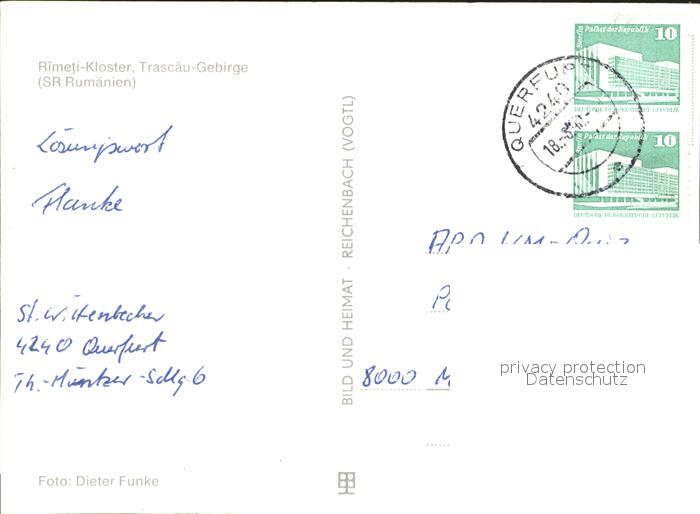 Rîmeţi-Kloster, Trascău-Gebirge
(SR Rumänien)
Lösungswort
Flanke
St. Wittenbecher
4240 Querfurt
Th.-Müntzer-Sdlg 6
Foto: Dieter Funke
BILD UND HEIMAT · REICHENBACH (VOGTL)
Berlin Palast der Republik 10
DEUTSCHE DEMOKRATISCHE REPUBLIK
Berlin Palast der Republik 10
DEUTSCHE DEMOKRATISCHE REPUBLIK
QUERFURT
4240
18.
ARD
8000 M
privacy protection
Datenschutz